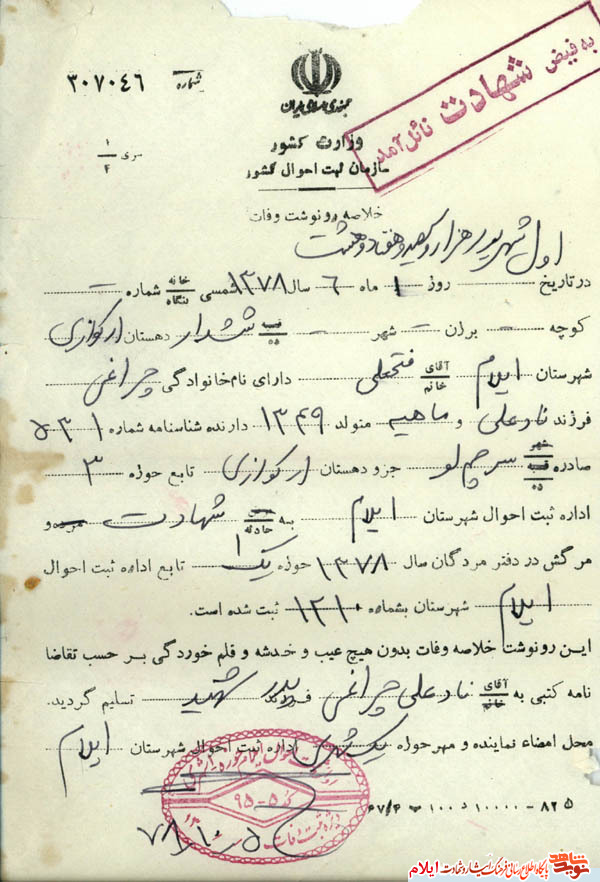 به فیض شهادت نائل آمد
شماره ۳۰۷۰۴۶
جمهوری اسلامی ایران
سری ۱/۴
وزارت کشور
سازمان ثبت احوال کشور
خلاصه رونوشت وفات
اول شهریور هزار و سیصد و هفتاد و هشت
در تاریخ روز ۱ ماه ۶ سال ۱۳۷۸ شمسی خانه بنگاه شماره –
کوچه – برزن – شهر – قصبه ده ششدار دهستان ارکوازی
شهرستان ایلام آقای خانم فتحعلی دارای نام خانوادگی چراغی
فرزند نادعلی و ماهیه متولد ۱۳۴۹ دارنده شناسنامه شماره ۵۳۱
صادره شهر قصبه ده سرچم لو جزو دهستان ارکوازی تابع حوزه ۳
اداره ثبت احوال شهرستان ایلام به مرض حادثه شهادت مرده و
مرگش در دفتر مردگان سال ۱۳۷۸ حوزه یک ۱ تابع اداره ثبت احوال
ایلام شهرستان بشماره ۱۲۱۰ ثبت شده است.
این رونوشت خلاصه وفات بدون هیچ عیب و خدشه و قلم خوردگی بر حسب تقاضا
نامه کتبی به آقای خانم نادعلی چراغی پدر شهید تسلیم گردید.
محل امضاء نماینده و مهر حوزه یک شهری اداره ثبت احوال شهرستان ایلام
کد ۵-۹۵
ویژه ثبت وفات
۷۸/۱۰/۵
۸۲۵-۱۰۰۰۰ د ۱۰۰
نوید شاهد
پایگاه اطلاع رسانی فرهنگ ایثار و شهادت ایلام